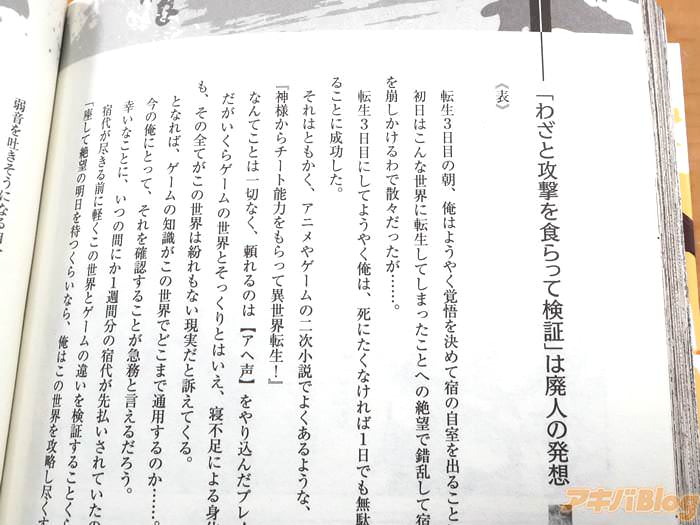 「わざと攻撃を食らって検証」は廃人の発想
《表》
転生3日目の朝、俺はようやく覚悟を決めて宿の自室を出ること
初日はこんな世界に転生してしまったことへの絶望で錯乱して宿
を崩しかけるわで散々だったが……。
転生3日目にしてようやく俺は、死にたくなければ1日でも無駄
ることに成功した。
それはともかく、アニメやゲームの二次小説でよくあるような、
『神様からチート能力をもらって異世界転生！』
なんてことは一切なく、頼れるのは【アヘ声】をやり込んだプレイ
だがいくらゲームの世界とそっくりとはいえ、寝不足による身体
も、その全てがこの世界は紛れもない現実だと訴えてくる。
となれば、ゲームの知識がこの世界でどこまで通用するのか……。
今の俺にとって、それを確認することが急務と言えるだろう。
幸いなことに、いつの間にか1週間分の宿代が先払いされていたの
宿代が尽きる前に軽くこの世界とゲームの違いを検証することくら
「座して絶望の明日を待つくらいなら、俺はこの世界を攻略し尽くす
弱音を吐きそうになる
アキバBlog